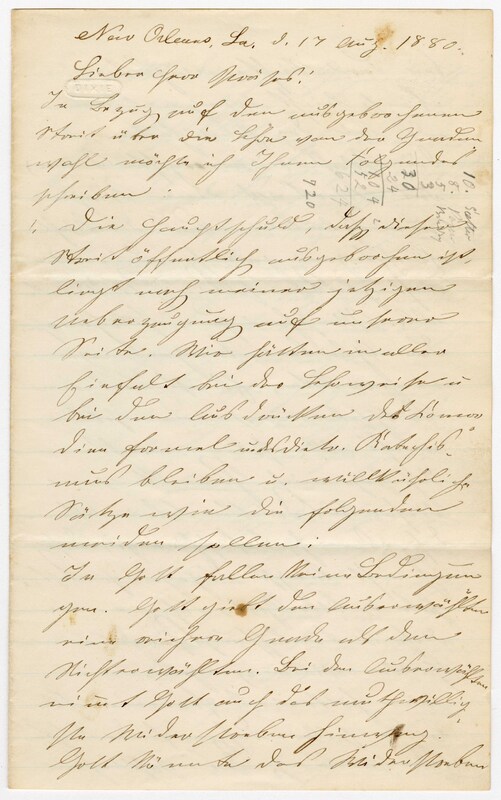 New Orleans, La. d. 17 Aug. 1880.
Lieber Herr Moses!
In Bezug auf den ausgebrochenen
Streit über die Lehre von der Gnaden
wahl möchte ich Ihnen Folgendes
schreiben:
1. Die Hauptschuld, daß dieser
Streit öffentlich ausgebrochen ist
liegt nach meiner jetzigen
Ueberzeugung auf unserer
Seite. Wir hätten in aller
Einfalt bei der Lehrweise u
bei den Ausdrücken der Concor
dienformel u. des Dietr. Katechis
mus bleiben u. willkührliche
Sätze wie die folgenden
meiden sollen:
In Gott fallen keine Bedingun
gen. Gott giebt den Auserwählten
eine reichere Gnade als den
Nichterwählten. Bei den Auserwählten
nimmt Gott auch das muthwillig
ste Widerstreben hinweg.
Gott könnte das Widerstreben
10.
8.
5.
3
30
24
604
624
920